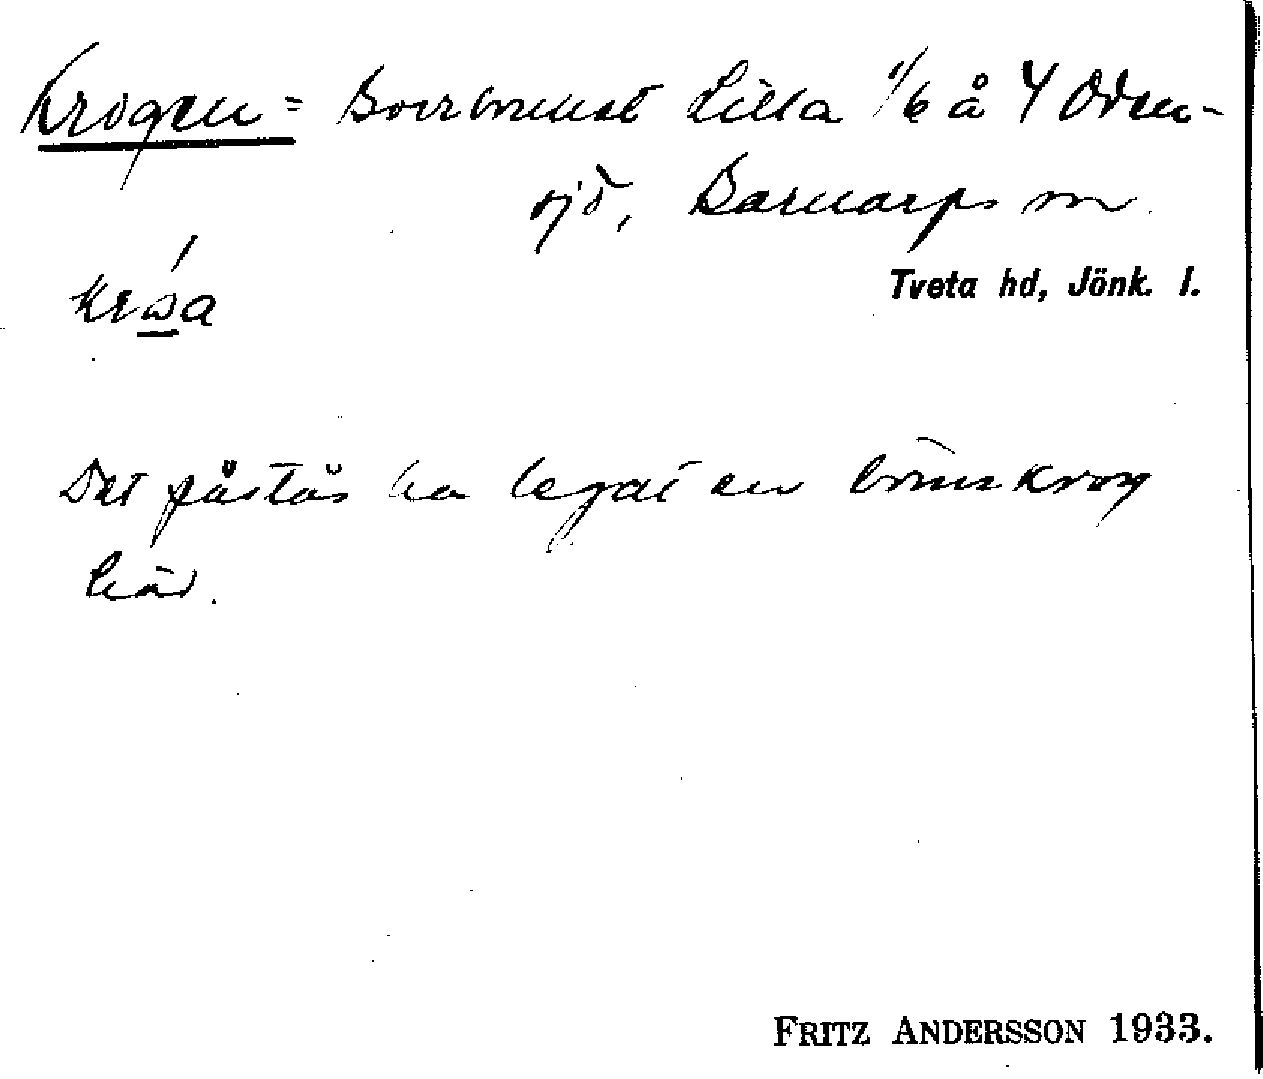 Krogen = Borrbrukst Lilla 1/6 å 4 Oden-
sjö, Barnarps sn
Det påstås ha legat en brännkrog
här.
Tveta hd, Jönk. l.
FRITZ ANDERSSON 1933.